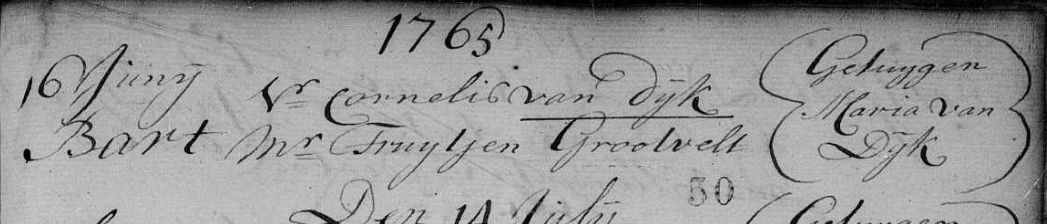 1765
16 Junij Vr Cornelis van Dijk
Bart Mr Truytjen Grootvelt
Getuygen
Maria van
Dijk
50
Den 14 Julij
Getuygen